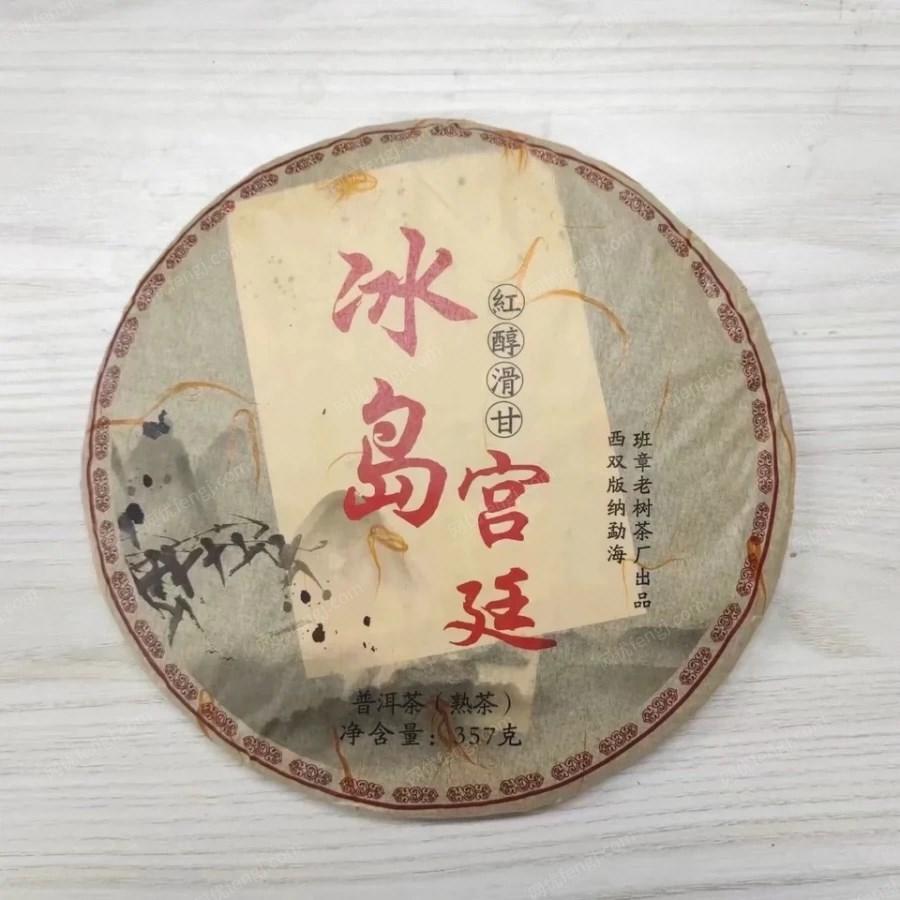 冰岛
宫廷
紅醇滑甘
班章老树茶厂出品
西双版纳勐海
普洱茶（熟茶）
净含量：357克